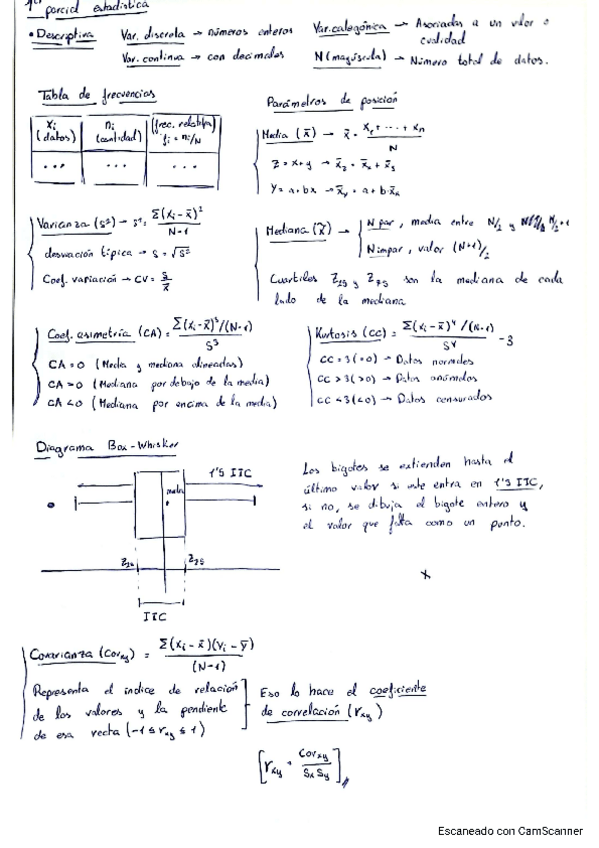 1er parcial estadistica
• Descriptiva
Var. discreta → números enteros
Var. continua → con decimales
Var. categórica → Asociadas a un valor o
cualidad
N (mayúscula) → Número total de datos.
Tabla de frecuencias
xi (datos) ni (cantidad) (frec. relativa) fi = ni/N
... ... ...
Parámetros de posición
Media (x̄) → x̄ = x1 + ... + xn / N
Z = x + y → z̄ = x̄ + ȳ
Y = a + bx → ȳ = a + b x̄
Varianza (s²) → s² = Σ(xi - x̄)² / N-1
desviación típica → s = √s²
Coef. variación → CV = s / x̄
Mediana (x̃) → N par, media entre N/2 y N/2+1
N impar, valor (N+1)/2
Cuartiles Z25 y Z75 son la mediana de cada
lado de la mediana
Coef. asimetría (CA) = Σ(xi - x̄)³/(N-1) / S³
CA = 0 (Media y mediana alineadas)
CA > 0 (Mediana por debajo de la media)
CA < 0 (Mediana por encima de la media)
Kurtosis (CC) = Σ(xi - x̄)⁴/(N-1) / S⁴ - 3
CC = 3 (=0) → Datos normales
CC > 3 (>0) → Datos anómalos
CC < 3 (<0) → Datos censurados
Diagrama Box-Whisker
1'5 ITC
Z25 Z75
ITC
Los bigotes se extienden hasta el
último valor si este entra en 1'5 ITC,
si no, se dibuja el bigote entero y
el valor que falta como un punto.
x
Covarianza (Covxy) = Σ(xi - x̄)(yi - ȳ) / (N-1)
Representa el índice de relación
de los valores y la pendiente
de esa recta (-1 ≤ rxy ≤ 1)
Eso lo hace el coeficiente
de correlación (rxy)
[rxy = Covxy / Sx Sy]
Escaneado con CamScanner